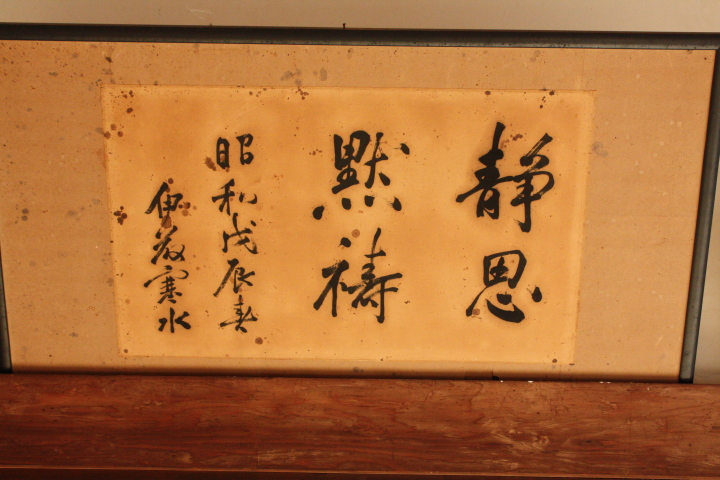 静思
默禱
昭和戊辰春
伊藤寒水